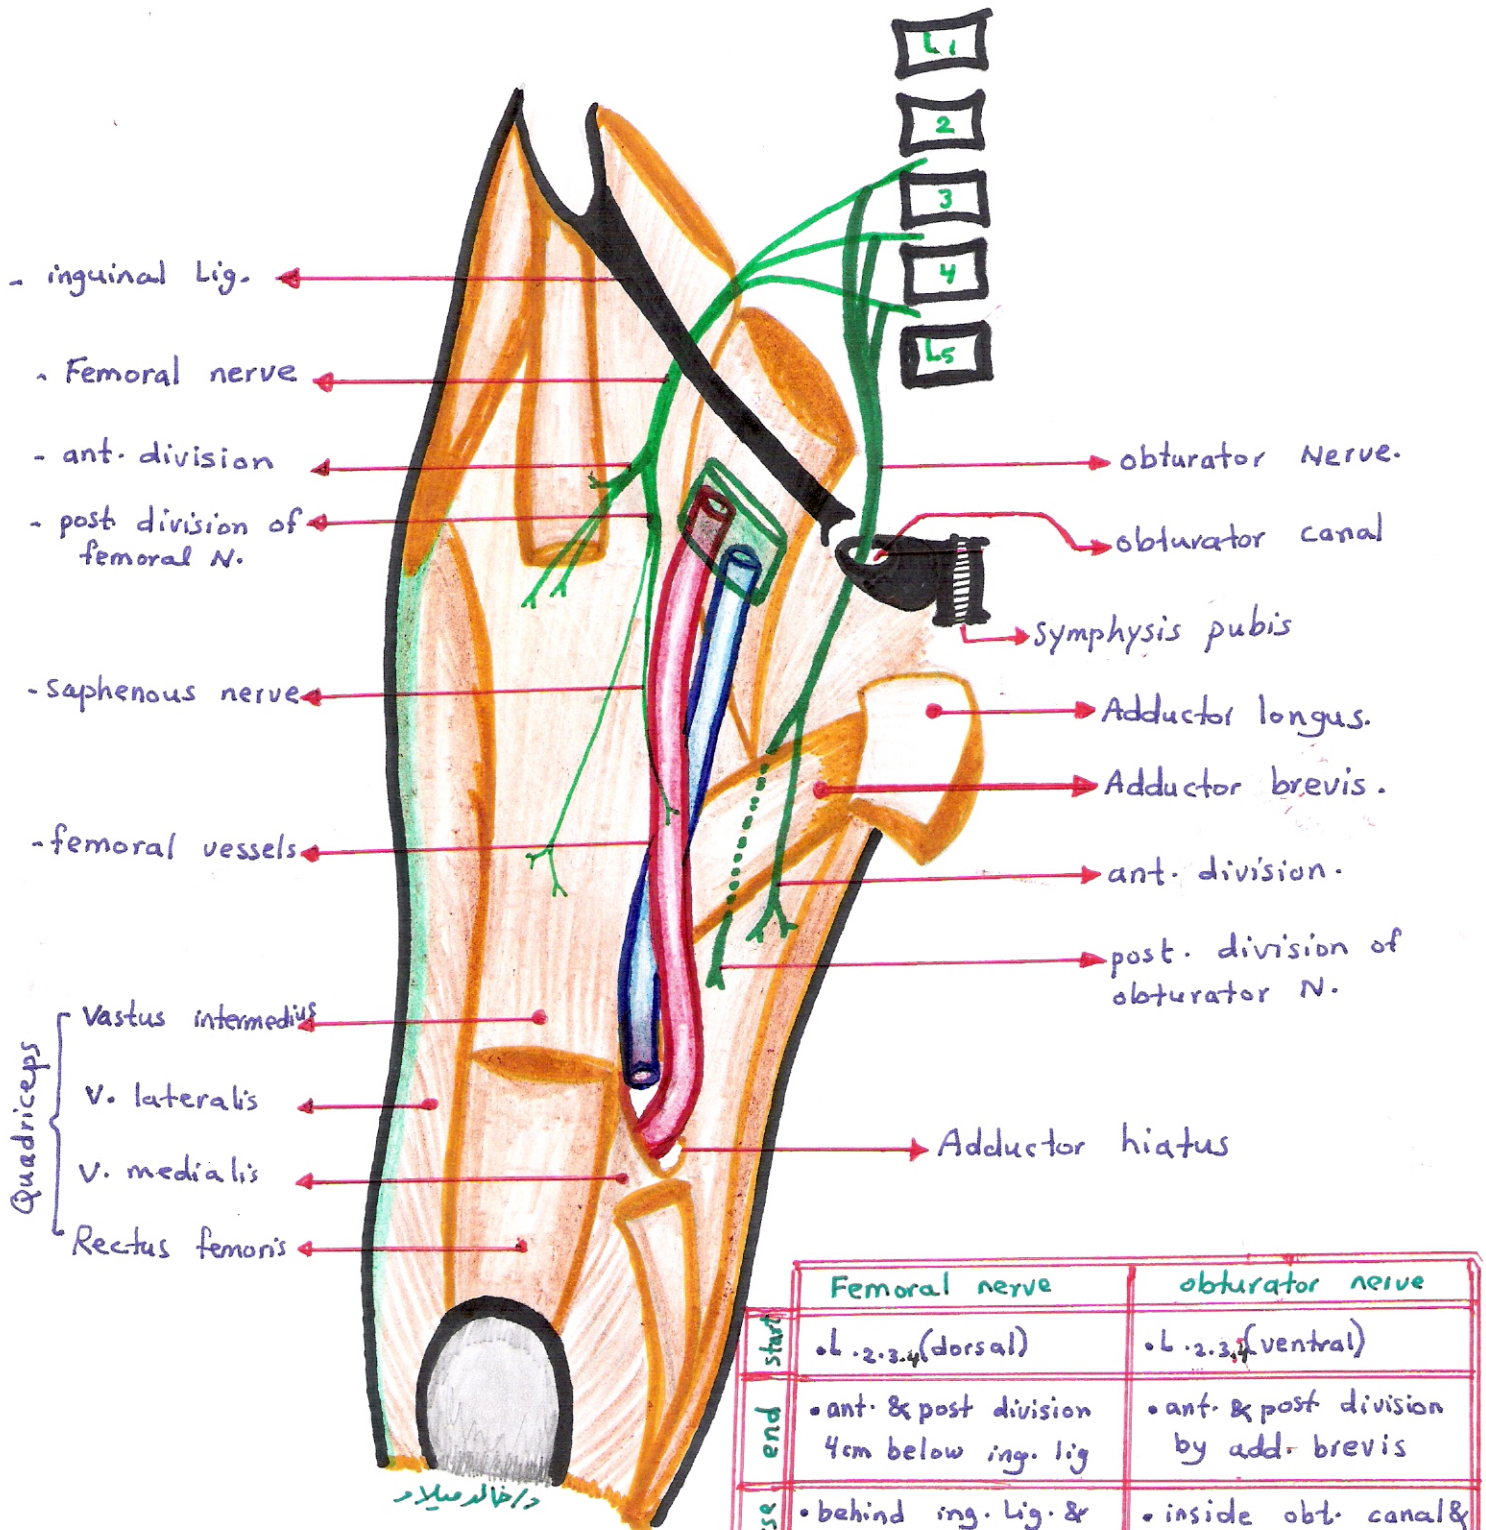 L1
2
3
4
L5
- inguinal Lig.
- Femoral nerve
- ant. division
- post division of
femoral N.
- saphenous nerve
- femoral vessels
Quadriceps
Vastus intermedius
V. lateralis
V. medialis
Rectus femoris
obturator Nerve.
obturator canal
symphysis pubis
Adductor longus.
Adductor brevis.
ant. division.
post. division of
obturator N.
Adductor hiatus
Femoral nerve
obturator nerve
start
• L.2.3.4.(dorsal)
• L.2.3.4(ventral)
end
• ant. & post division
4cm below ing. lig
• ant. & post division
by add. brevis
• behind ing. Lig. &
• inside obt. canal &
د/خالد ميلاد